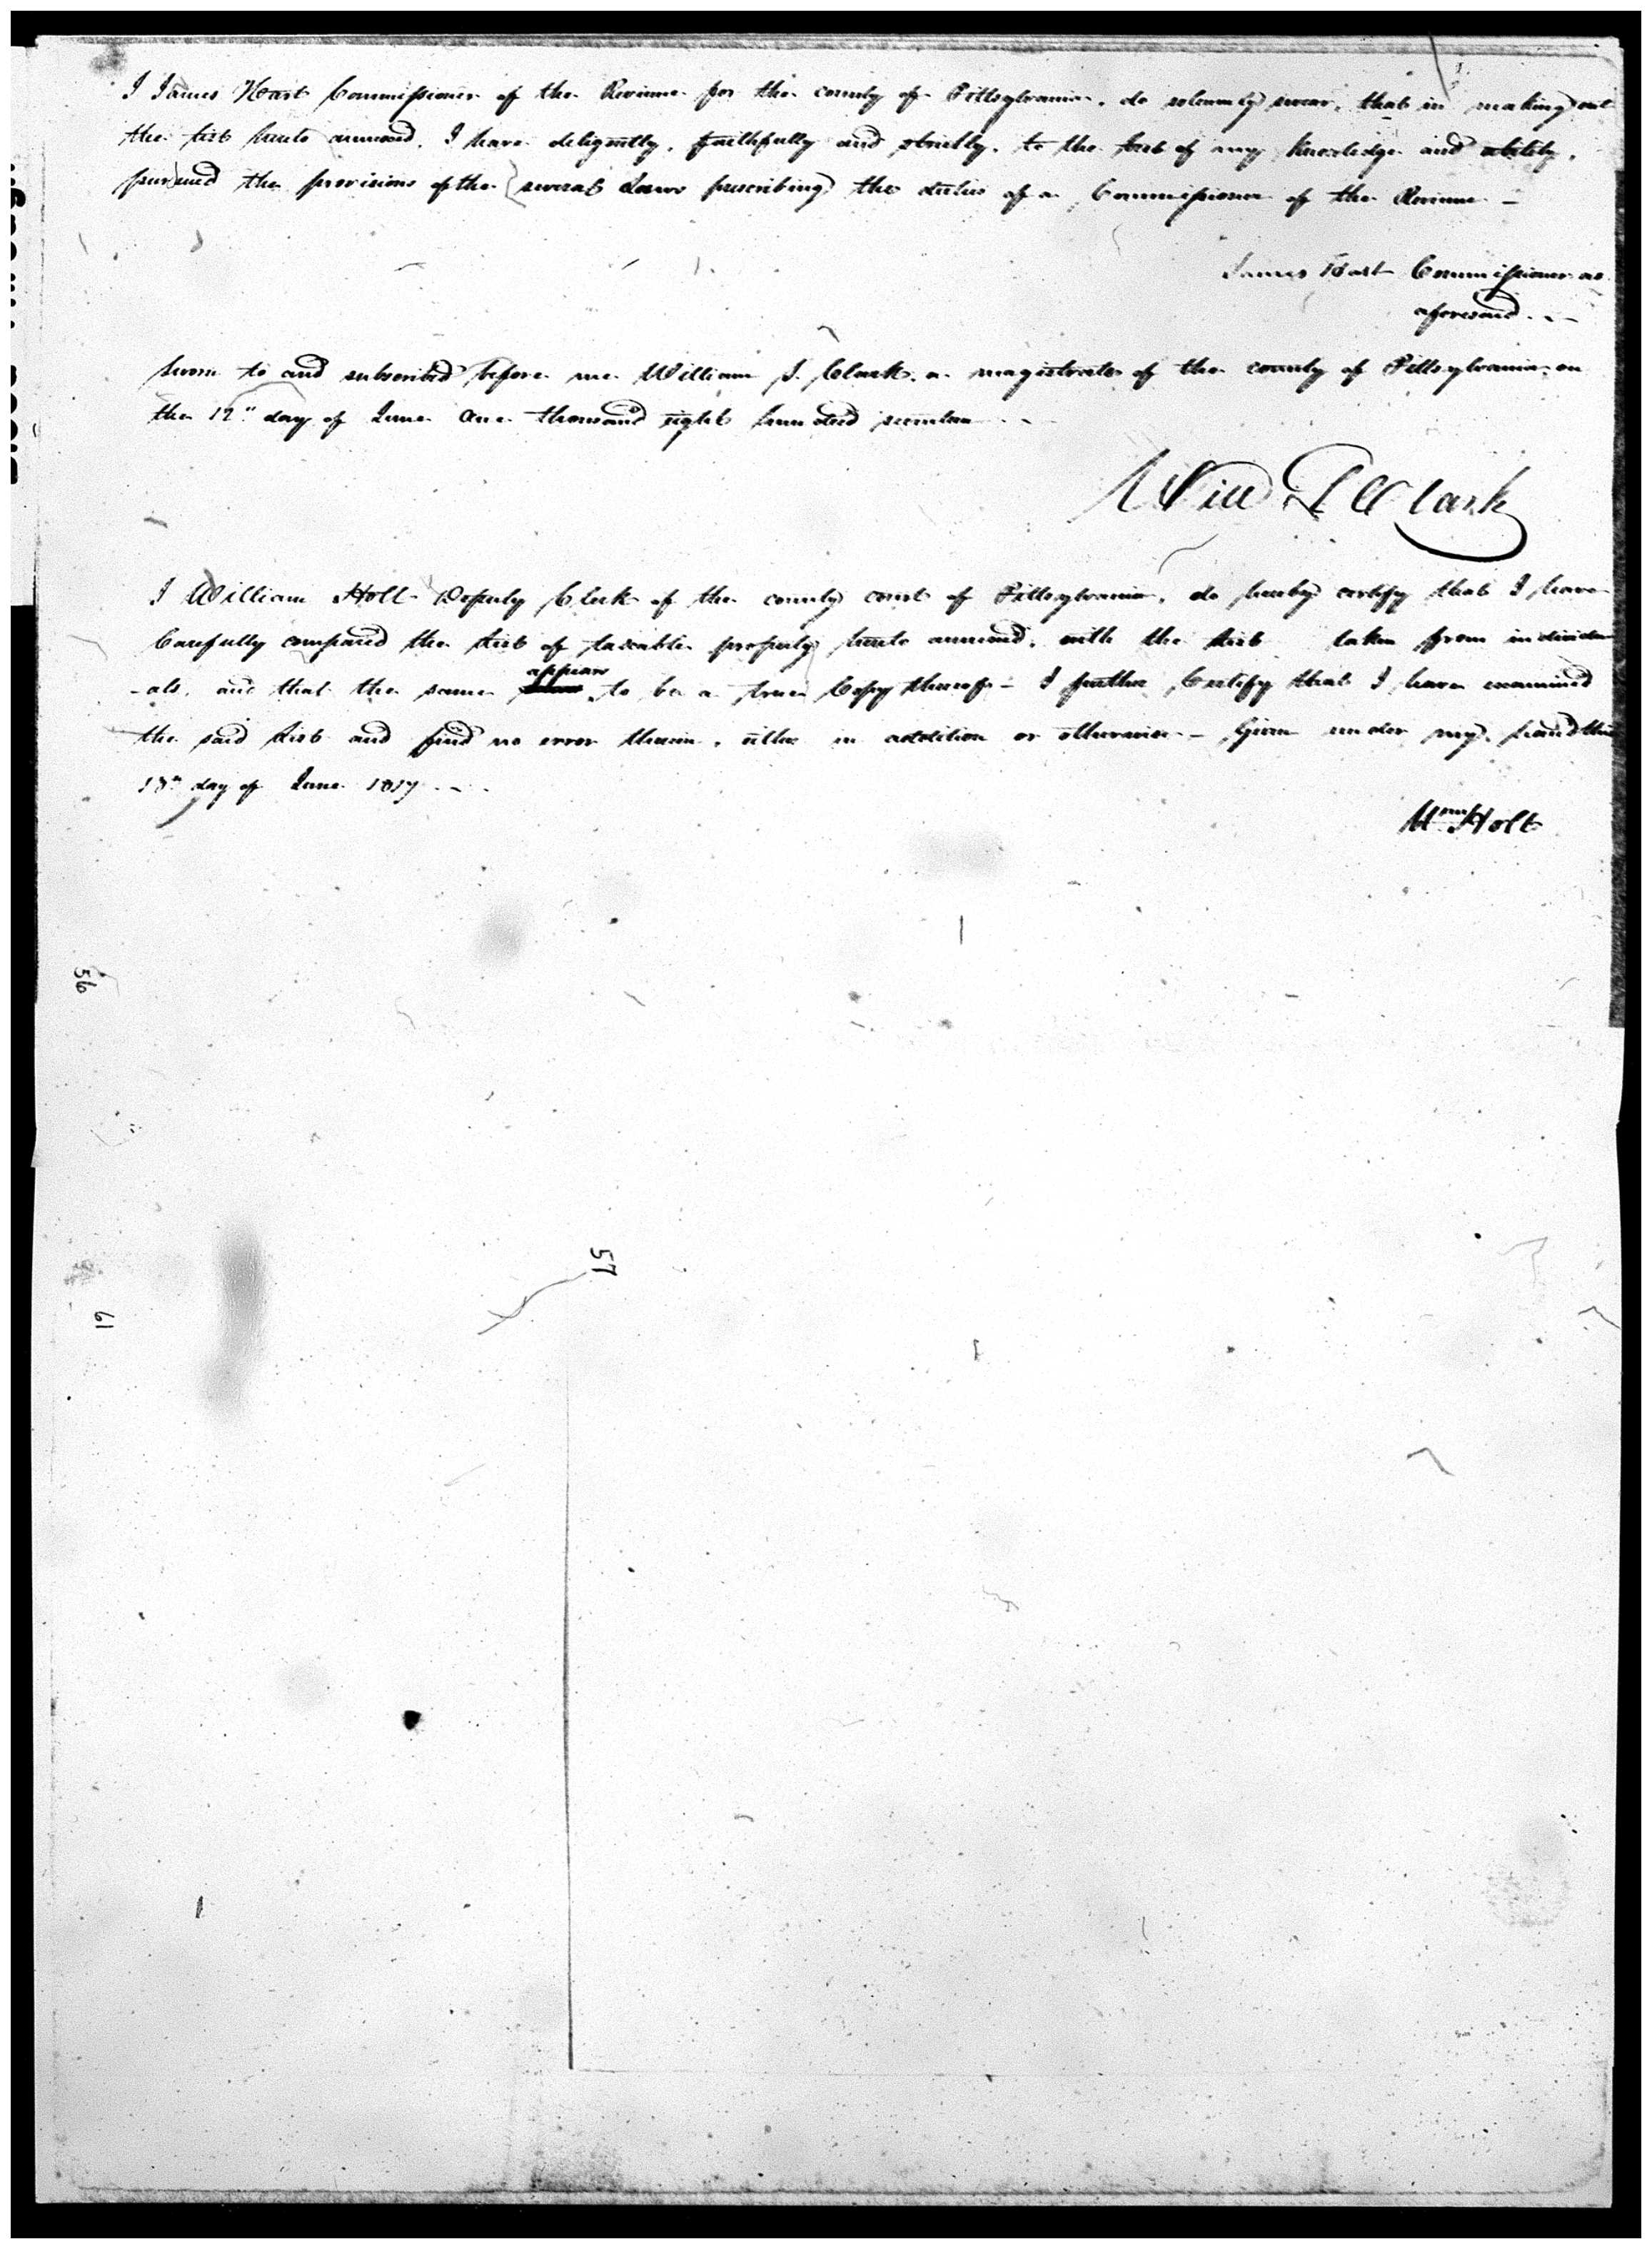 I James Hart Commissioner of the Revenue for the county of Pittsylvania, do solemnly swear, that in making out
the list hereto annexed, I have deligently, faithfully and strictly, to the best of my knowledge and ability,
pursued the provisions of the several Laws prescribing the duties of a Commissioner of the Revenue —
James Hart Commissioner as
aforesaid
Sworn to and subscribed before me William S. Clark, a magistrate of the county of Pittsylvania, on
the 12" day of June One thousand eight hundred seventeen
Will S Clark
I William Holt Deputy Clerk of the county court of Pittsylvania, do hereby certify that I have
Carefully compared the List of taxable property hereto annexed, with the List taken from individu
-als, and that the same appears to be a true Copy thereof — I further Certify that I have examined
the said List and find no error therein, either in addition or otherwise — Given under my hand this
18" day of June 1817
Wm Holt
56
57
61